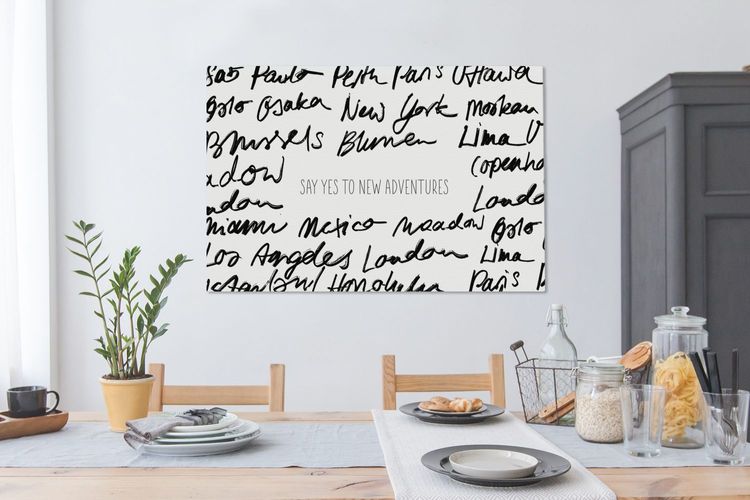 Sao Paulo Perth Paris Ottawa
Oslo Osaka New York
Brussels Blumen Lima
adow
SAY YES TO NEW ADVENTURES
Copenha
ondon
Londo
Miami Mexico Meadow Oslo
Los Angeles London Lima
Honolulu Paris